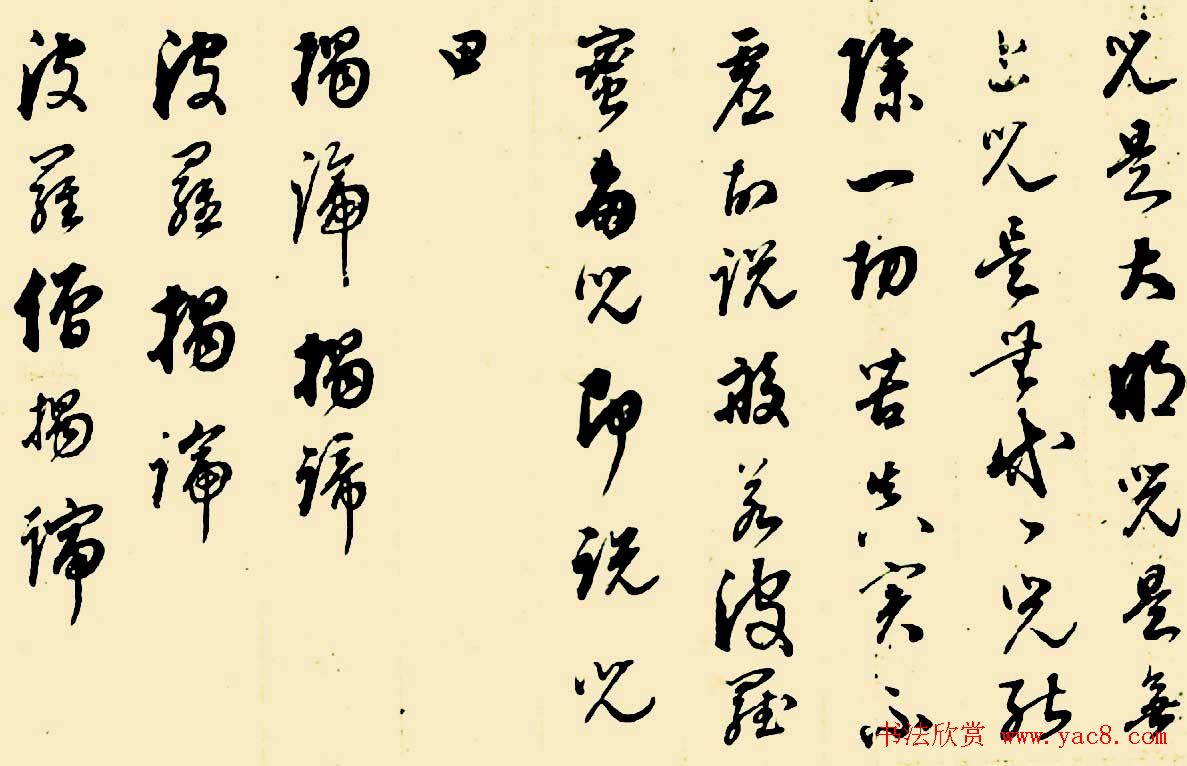 咒是大明咒是無
上咒是無等々咒能
除一切苦真實不
虛故說般若波羅
蜜多咒即說咒
曰
揭諦揭諦
波羅揭諦
波羅僧揭諦
书法欣赏 www.yac8.com